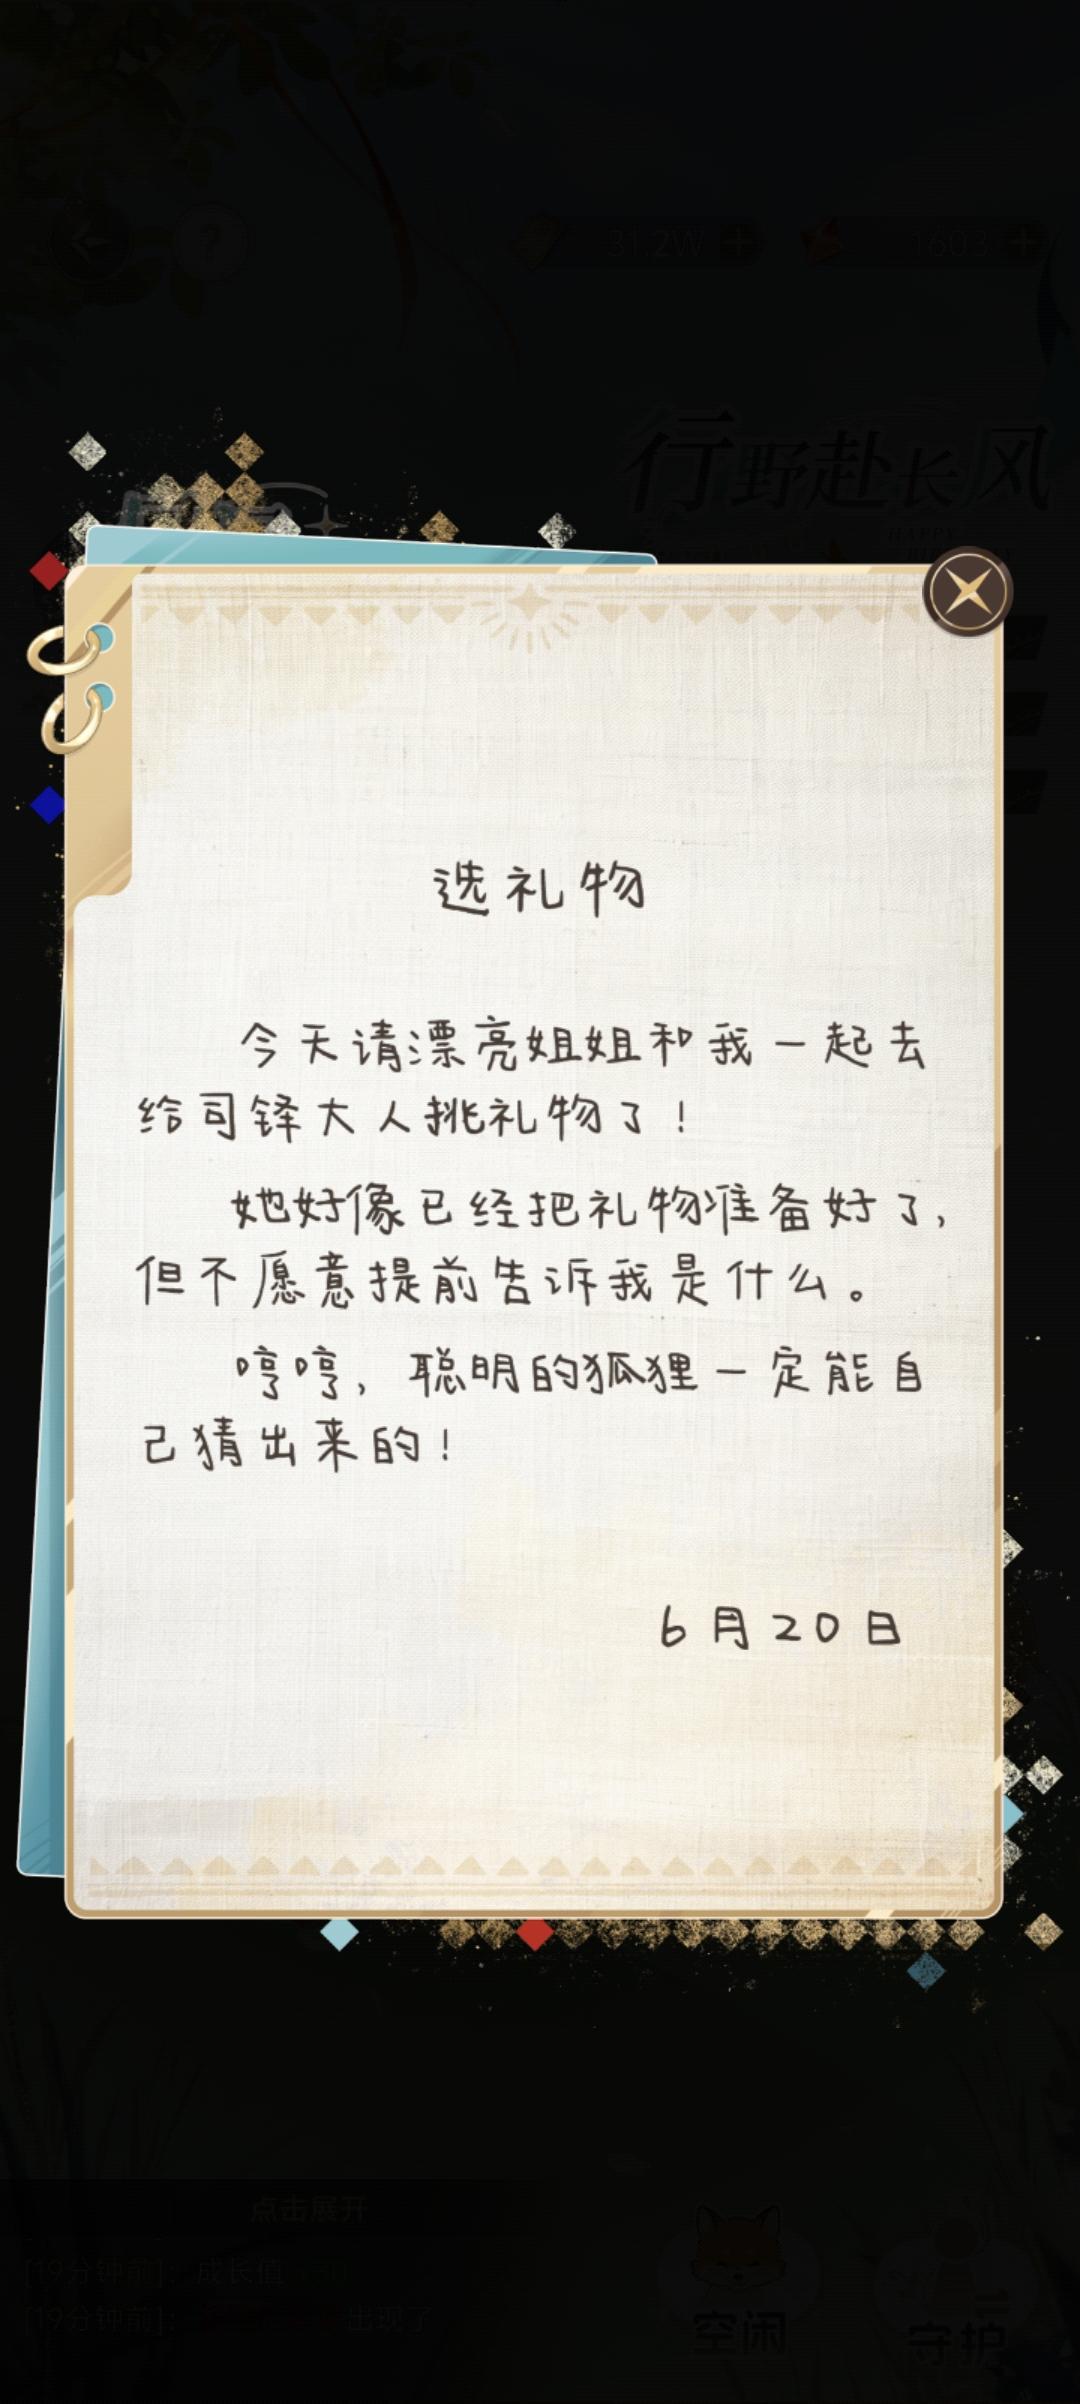 31.2W
1603
行野赴长风
HAPPY
选礼物
今天请漂亮姐姐和我一起去
给司铎大人挑礼物了！
她好像已经把礼物准备好了，
但不愿意提前告诉我是什么。
哼哼，聪明的狐狸一定能自
己猜出来的！
6月20日
点击展开
[19分钟前]：成长值
[19分钟前]：
出现了
空闲
守护